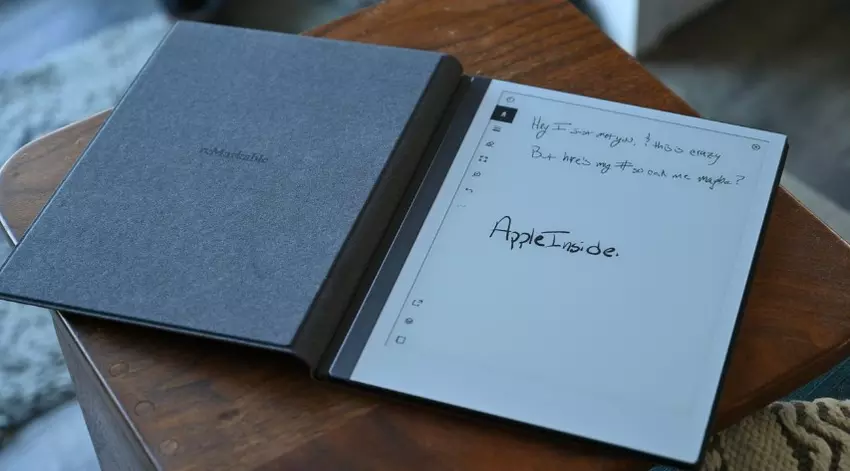 reMarkable
Hey I just met you, & this is crazy
But heres my # so call me maybe?
AppleInside.